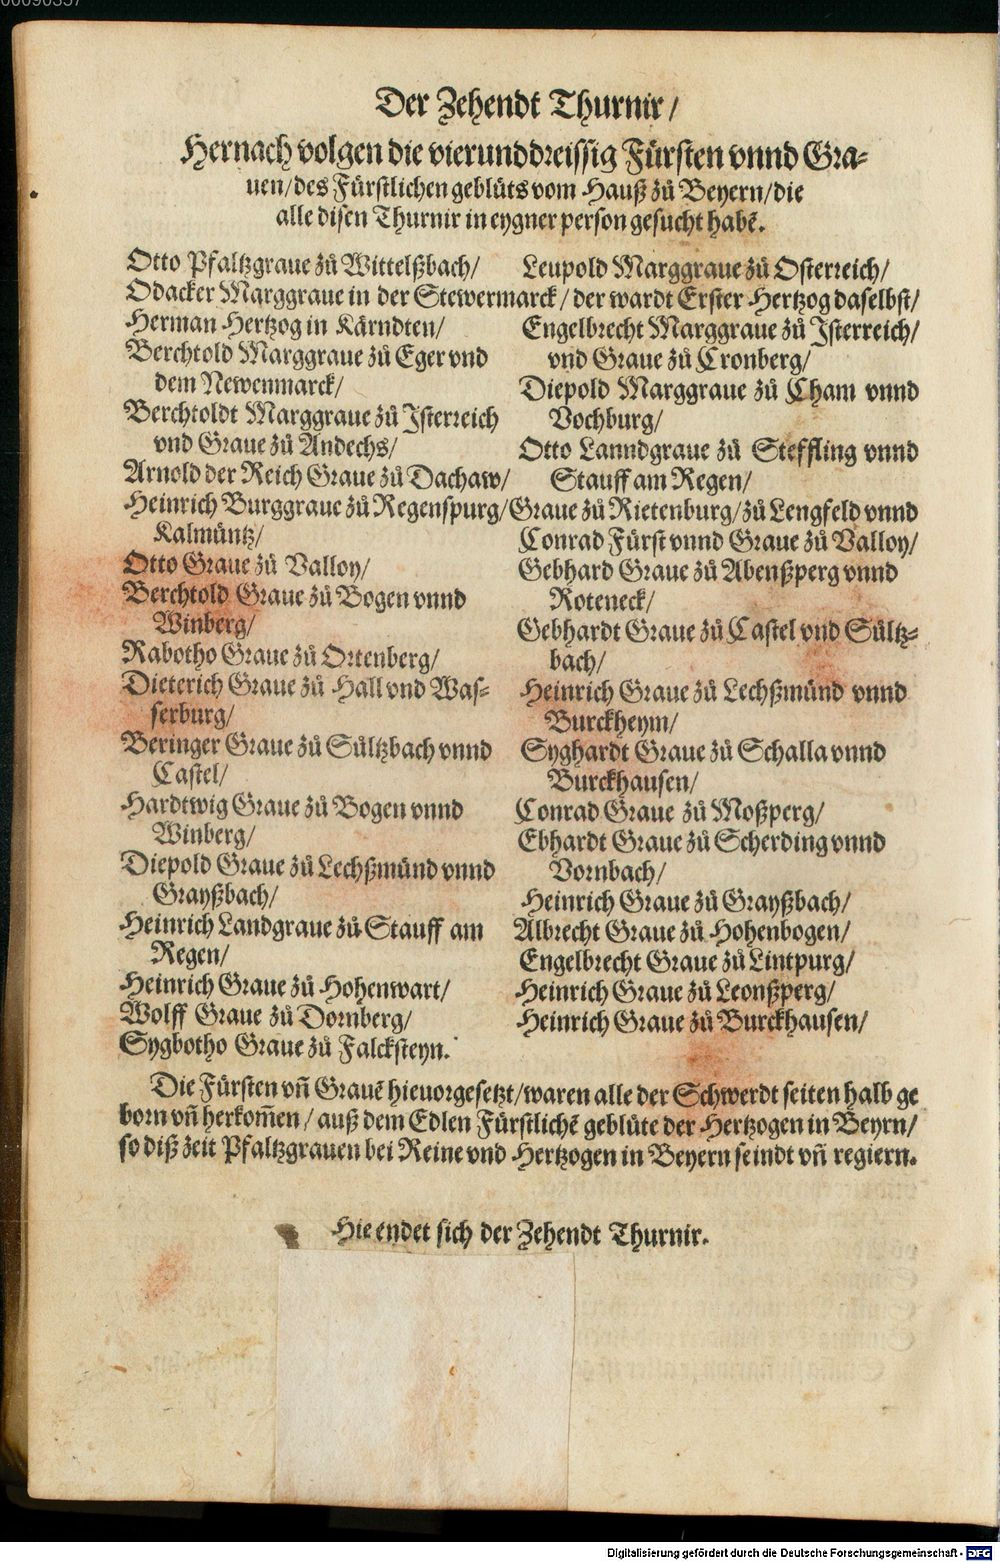 Der Zehendt Thurnir/
Hernach volgen die vierunddreissig Fürsten vnnd Gra-
uen/des Fürstlichen geblüts vom Hauß zů Beyern/die
alle disen Thurnir in eygner person gesucht habẽ.
Otto Pfaltzgraue zů Wittelßbach/
Leupold Marggraue zů Osterreich/
Odacker Marggraue in der Stewermarck/der wardt Erster Hertzog daselbst/
Herman Hertzog in Kärndten/
Berchtold Marggraue zů Eger vnd
dem Newenmarck/
Berchtoldt Marggraue zů Jsterreich
vnd Graue zů Andechs/
Arnold der Reich Graue zů Dachaw/
Engelbrecht Marggraue zů Jsterreich/
vnd Graue zů Cronberg/
Diepold Marggraue zů Cham vnnd
Vochburg/
Otto Lanndgraue zů Steffling vnnd
Stauff am Regen/
Heinrich Burggraue zů Regenspurg/Graue zů Rietenburg/zů Lengfeld vnnd
Kalmüntz/
Otto Graue zů Valloy/
Berchtold Graue zů Bogen vnnd
Winberg/
Rabotho Graue zů Ortenberg/
Dieterich Graue zů Hall vnd Was-
serburg/
Beringer Graue zů Sültzbach vnnd
Castel/
Hardtwig Graue zů Bogen vnnd
Winberg/
Diepold Graue zů Lechßmünd vnnd
Grayßbach/
Heinrich Landgraue zů Stauff am
Regen/
Heinrich Graue zů Hohenwart/
Wolff Graue zů Dornberg/
Sygbotho Graue zů Falcksteyn.
Conrad Fürst vnnd Graue zů Valloy/
Gebhard Graue zů Abenßperg vnnd
Roteneck/
Gebhardt Graue zů Castel vnd Sültz-
bach/
Heinrich Graue zů Lechßmünd vnnd
Burckheym/
Syghardt Graue zů Schalla vnnd
Burckhausen/
Conrad Graue zů Moßperg/
Ebhardt Graue zů Scherding vnnd
Vornbach/
Heinrich Graue zů Grayßbach/
Albrecht Graue zů Hohenbogen/
Engelbrecht Graue zů Lintpurg/
Heinrich Graue zů Leonßperg/
Heinrich Graue zů Burckhausen/
Die Fürsten vñ Grauẽ hieuorgesetzt/waren alle der Schwerdt seiten halb ge
born vñ herkom̃en/auß dem Edlen Fürstlichẽ geblüte der Hertzogen in Beyrn/
so diß zeit Pfaltzgrauen bei Reine vnd Hertzogen in Beyern seindt vñ regiern.
Hie endet sich der Zehendt Thurnir.
Digitalisierung gefördert durch die Deutsche Forschungsgemeinschaft - DFG